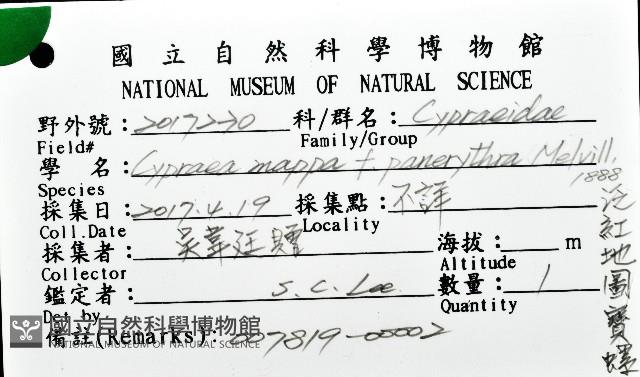 國立自然科學博物館
NATIONAL MUSEUM OF NATURAL SCIENCE
野外號：2017220 科/群名：Cypraeidae
Field# Family/Group
學 名：Cypraea mappa f. panerythra Melvill, 1888
Species
採集日：2017.4.19 採集點：不詳
Coll.Date Locality
採集者：吳韋廷贈 海拔： m
Collector Altitude
鑑定者： S.C. Lee 數量：1
Det by Quantity
備註(Remarks)：007819-00002
泛紅地圖寶螺
國立自然科學博物館
NATIONAL MUSEUM OF NATURAL SCIENCE